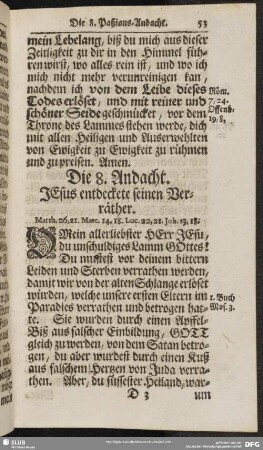 Die 8. Paßions-Andacht. 53
mein Lebelang, biß du mich aus dieser
Zeitigkeit zu dir in den Himmel füh-
ren wirst, wo alles rein ist, und wo ich
mich nicht mehr verunreinigen kan,
nachdem ich von dem Leibe dieses Röm.
Todes erlöset, und mit reiner und 7, 24.
schöner Seide geschmücket, vor dem Offenb.
Throne des Lammes stehen werde, dich 19, 8.
mit allen Heiligen und Auserwehlten
von Ewigkeit zu Ewigkeit zu rühmen
und zu preisen. Amen.
Die 8. Andacht.
JEsus entdeckete seinen Ver-
räther.
Matth. 26, 21. Marc. 14, 18. Luc. 22, 21. Joh. 13, 18.
Mein allerliebster HErr JEsu,
du unschuldiges Lamm GOttes!
Du mustest vor deinem bittern
Leiden und Sterben verrathen werden,
damit wir von der alten Schlange erlöset
würden, welche unsere ersten Eltern im 1. Buch
Paradies verrathen und betrogen hat- Mos. 3.
te. Sie wurden durch einen Apffel-
Biß aus falscher Einbildung, GOTT
gleich zu werden, von dem Satan betro-
gen, du aber wurdest durch einen Kuß
aus falschem Hertzen von Juda verra-
then. Aber, du süssester Heiland, war-
D 3 um
SLUB